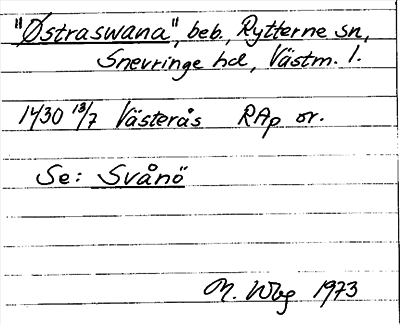 "Østraswana", beb., Rytterne sn,
Snevringe hd, Västm. l.
1430 13/7 Västerås RAp or.
Se: Svånö
M. Wbg 1973